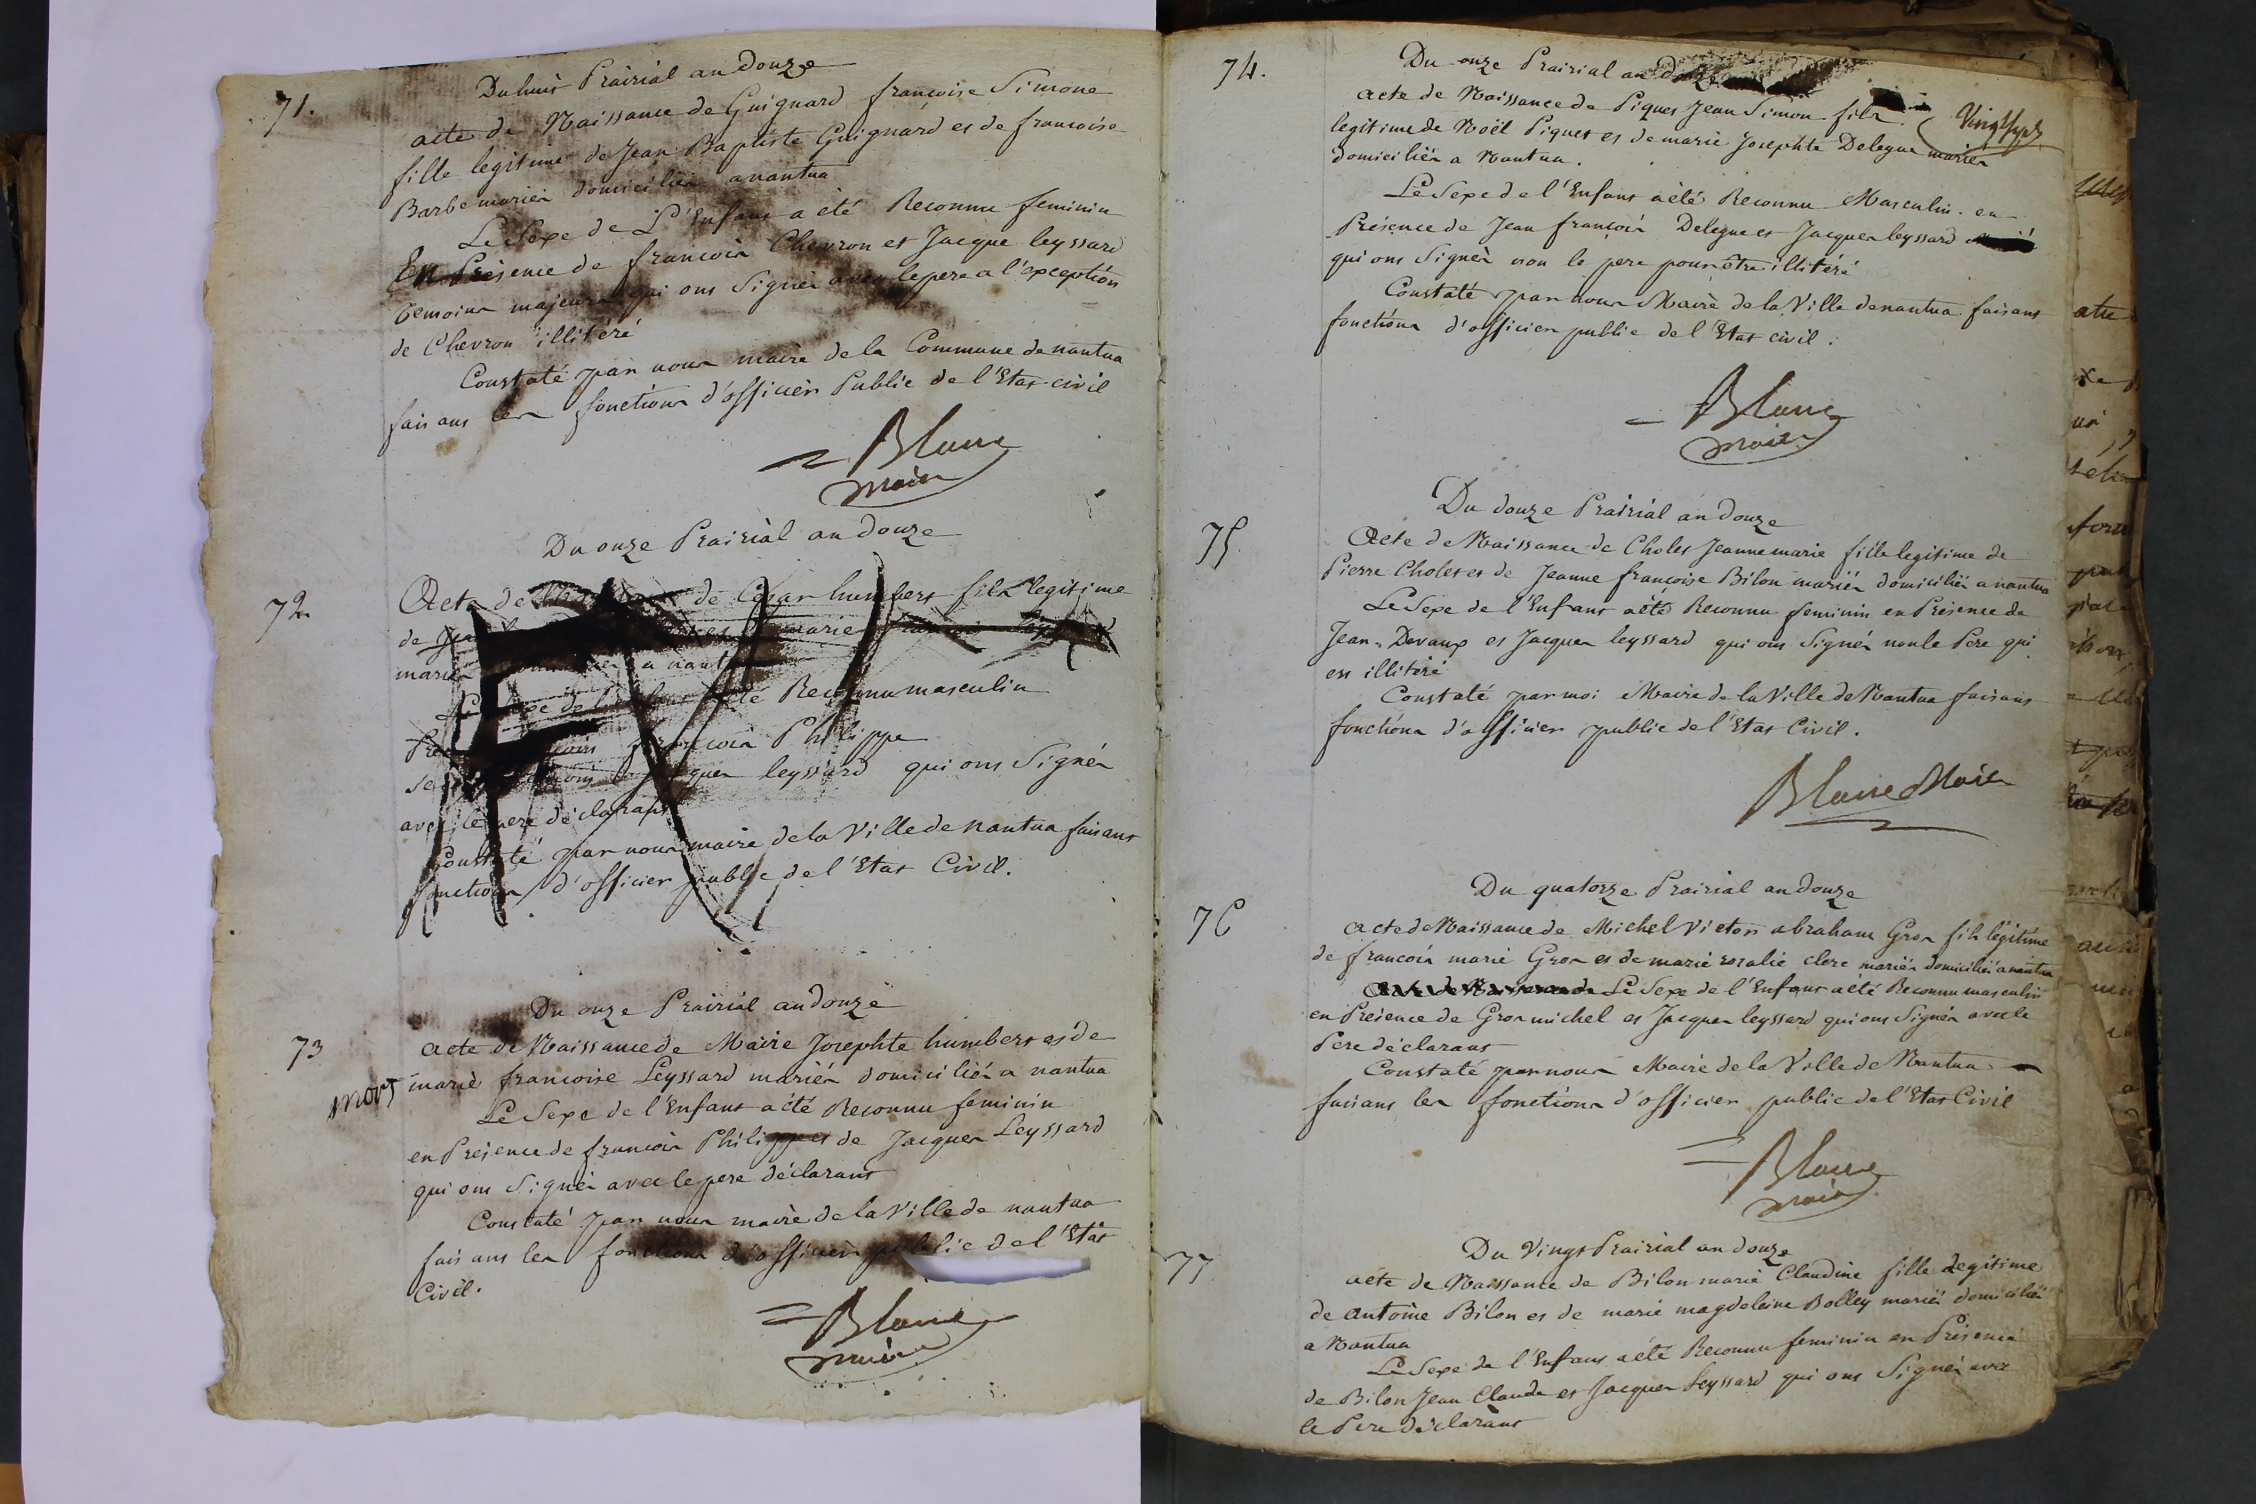 71.
Du huit Prairial an douze
acte de Naissance de Guignard françoise Simone
fille legitime de Jean Baptiste Guignard et de françoise
Barbe mariés domiciliés a nantua
Le Sexe de L'Enfant a été Reconnu feminin
En Présence de francois Chevron et Jacque leyssard
temoins majeurs qui ont Signés avec le pere a l'exception
de Chevron illitéré
Constaté par nous maire de la Commune de nantua
faisant les fonctions d'officier Public de l'Etat civil
Blanc
maire
72
Du onze Prairial an douze
Acte de de César humbert fils legitime
de marie
mariés a nantua
Le Sexe de été Reconnu masculin
françois Philippe
Jacques leyssard qui ont Signés
avec le pere déclarant
Constaté par nous maire de la Ville de nantua faisant
fonctions d'officier public de l'Etat Civil.
73
mort
Du onze Prairial an douze
acte de Naissance de Marie Josephte humbert et de
marie francoise Leyssard mariés domiciliés a nantua
Le Sexe de l'Enfant a été Reconnu feminin
en Présence de francois Philippe et de Jacques Leyssard
qui ont Signés avec le pere déclarant
Constaté par nous maire de la Ville de nantua
faisant les fonctions d'officier public de l'Etat
Civil.
Blanc
maire
74.
Du onze Prairial an douze
acte de Naissance de Piquet Jean Simon fils
Vingt sept
legitime de Noël Piquet et de marie Josephte Delegue mariés
domiciliés a Nantua.
Le Sexe de l'Enfant a été Reconnu Masculin en
Présence de Jean françois Delegue et Jacques leyssard
qui ont Signés non le pere pour être illitéré
Constaté par nous Maire de la Ville de nantua faisant
fonctions d'officier public de l'Etat civil.
Blanc
maire
75
Du douze Prairial an douze
Acte de Naissance de Cholet Jeanne marie fille legitime de
Pierre Cholet et de Jeanne françoise Bilon mariés domiciliés a nantua
Le Sexe de l'Enfant a été Reconnu feminin en Présence de
Jean Devaux et Jacques leyssard qui ont Signés non le Pere qui
est illitéré
Constaté par moi Maire de la Ville de Nantua faisant
fonctions d'officier public de l'Etat Civil.
Blanc Maire
76
Du quatorze Prairial an douze
acte de Naissance de Michel Victor abraham Gros fils légitime
de francois marie Gros et de marie rosalie clerc mariés domiciliés a nantua
Acte de Naissance de Le Sexe de l'Enfant a été Reconnu masculin
en Présence de Gros michel et Jacques leyssard qui ont Signés avec le
Pere déclarant
Constaté par nous Maire de la Ville de Nantua
faisant les fonctions d'officier public de l'Etat Civil
Blanc
maire
77
Du Vingt Prairial an douze
acte de Naissance de Bilon marie Claudine fille Legitime
de antoine Bilon et de marie magdeleine Bolley mariés domiciliés
a Nantua
Le Sexe de l'Enfant a été Reconnu feminin en Présence
de Bilon Jean Claude et Jacques Leyssard qui ont Signés avec
le Pere déclarant